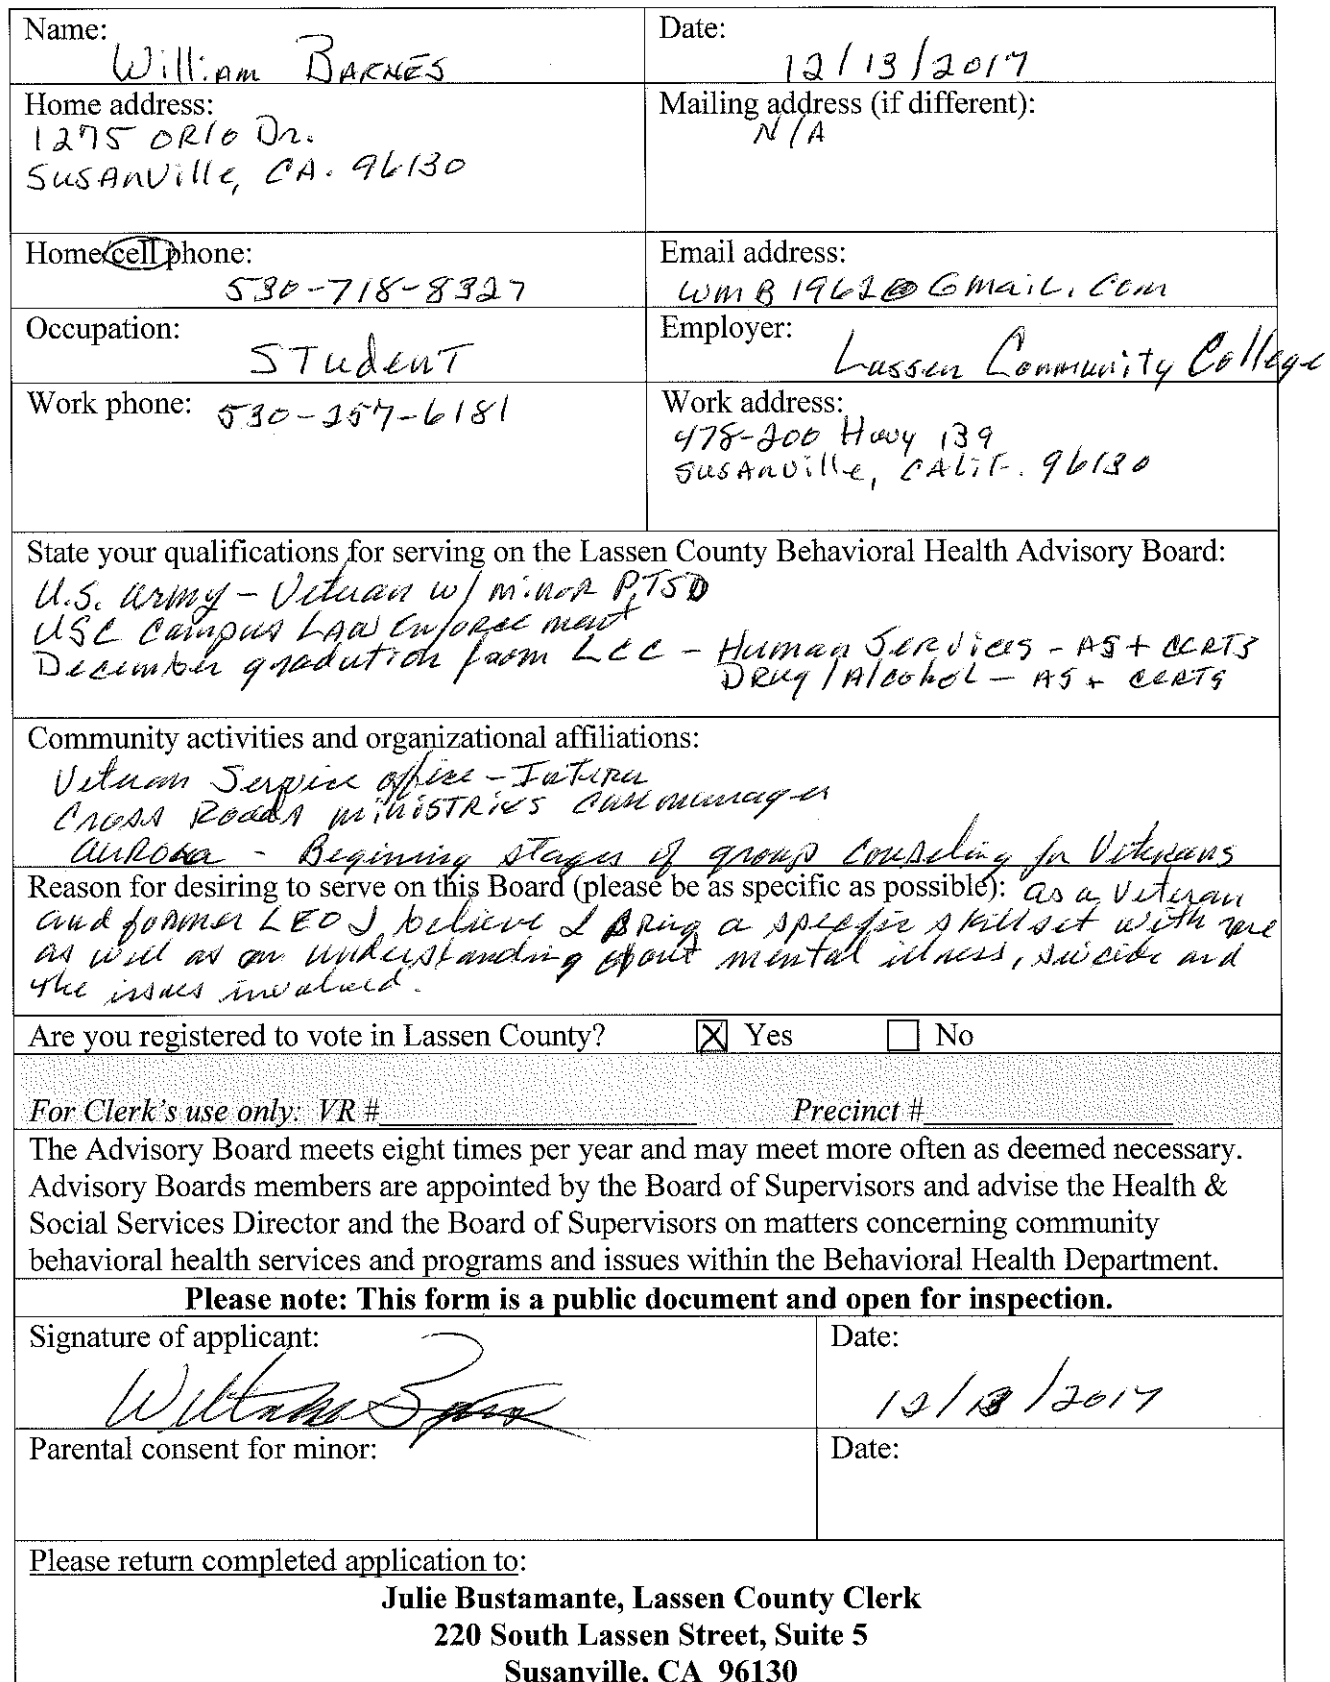 Name:
William BARNES
Date:
12/13/2017
Home address:
1275 ORlo Dr.
SusAnville, CA. 96130
Mailing address (if different):
N/A
Home/cell phone:
530-718-8327
Email address:
wmB1962@Gmail.com
Occupation:
STudenT
Employer:
Lassen Community College
Work phone: 530-257-6181
Work address:
478-200 Hwy 139
SusAnville, CALif. 96130
State your qualifications for serving on the Lassen County Behavioral Health Advisory Board:
U.S. Army - Veteran w/ minor PTSD
USC Campus LAW Enforcement
December gradution from LCC - Human Services - AS + CERTS
DRug/Alcohol - AS + CERTS
Community activities and organizational affiliations:
Veteran Service office - Intern
Cross Roads miniSTRies Casemanager
AURORA - Beginning stages of group Counseling for Veterans
Reason for desiring to serve on this Board (please be as specific as possible): as a Veteran
and former LEO I believe I Bring a specific skill set with me
as well as an understanding about mental illness, suicide and
the issues involved.
Are you registered to vote in Lassen County? Yes No
For Clerk's use only: VR # Precinct #
The Advisory Board meets eight times per year and may meet more often as deemed necessary.
Advisory Boards members are appointed by the Board of Supervisors and advise the Health &
Social Services Director and the Board of Supervisors on matters concerning community
behavioral health services and programs and issues within the Behavioral Health Department.
Please note: This form is a public document and open for inspection.
Signature of applicant:
Date:
12/13/2017
Parental consent for minor:
Date:
Please return completed application to:
Julie Bustamante, Lassen County Clerk
220 South Lassen Street, Suite 5
Susanville, CA 96130